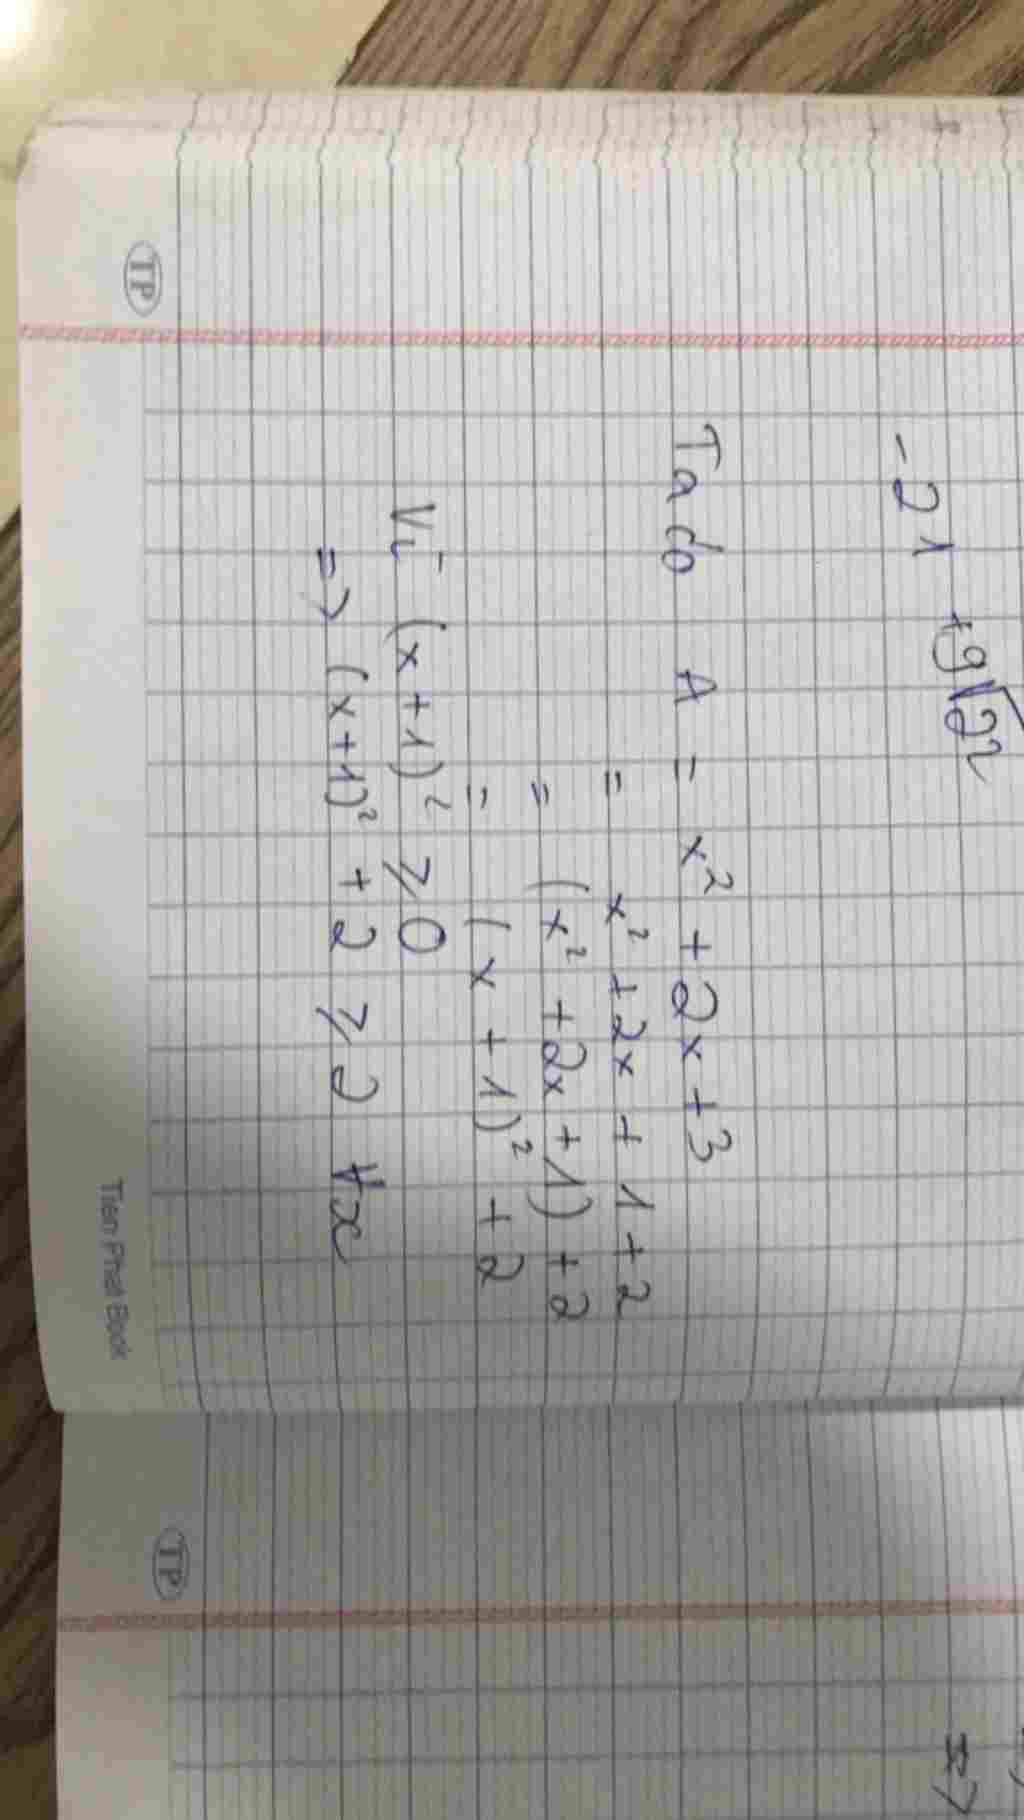 -21 +9√22
Ta có A = x² + 2x + 3
= x² + 2x + 1 + 2
= (x² + 2x + 1) + 2
= (x + 1)² + 2
Vì (x + 1)² ≥ 0
=> (x + 1)² + 2 ≥ 2 ∀x
TP
Tien Phat Book
TP
=>